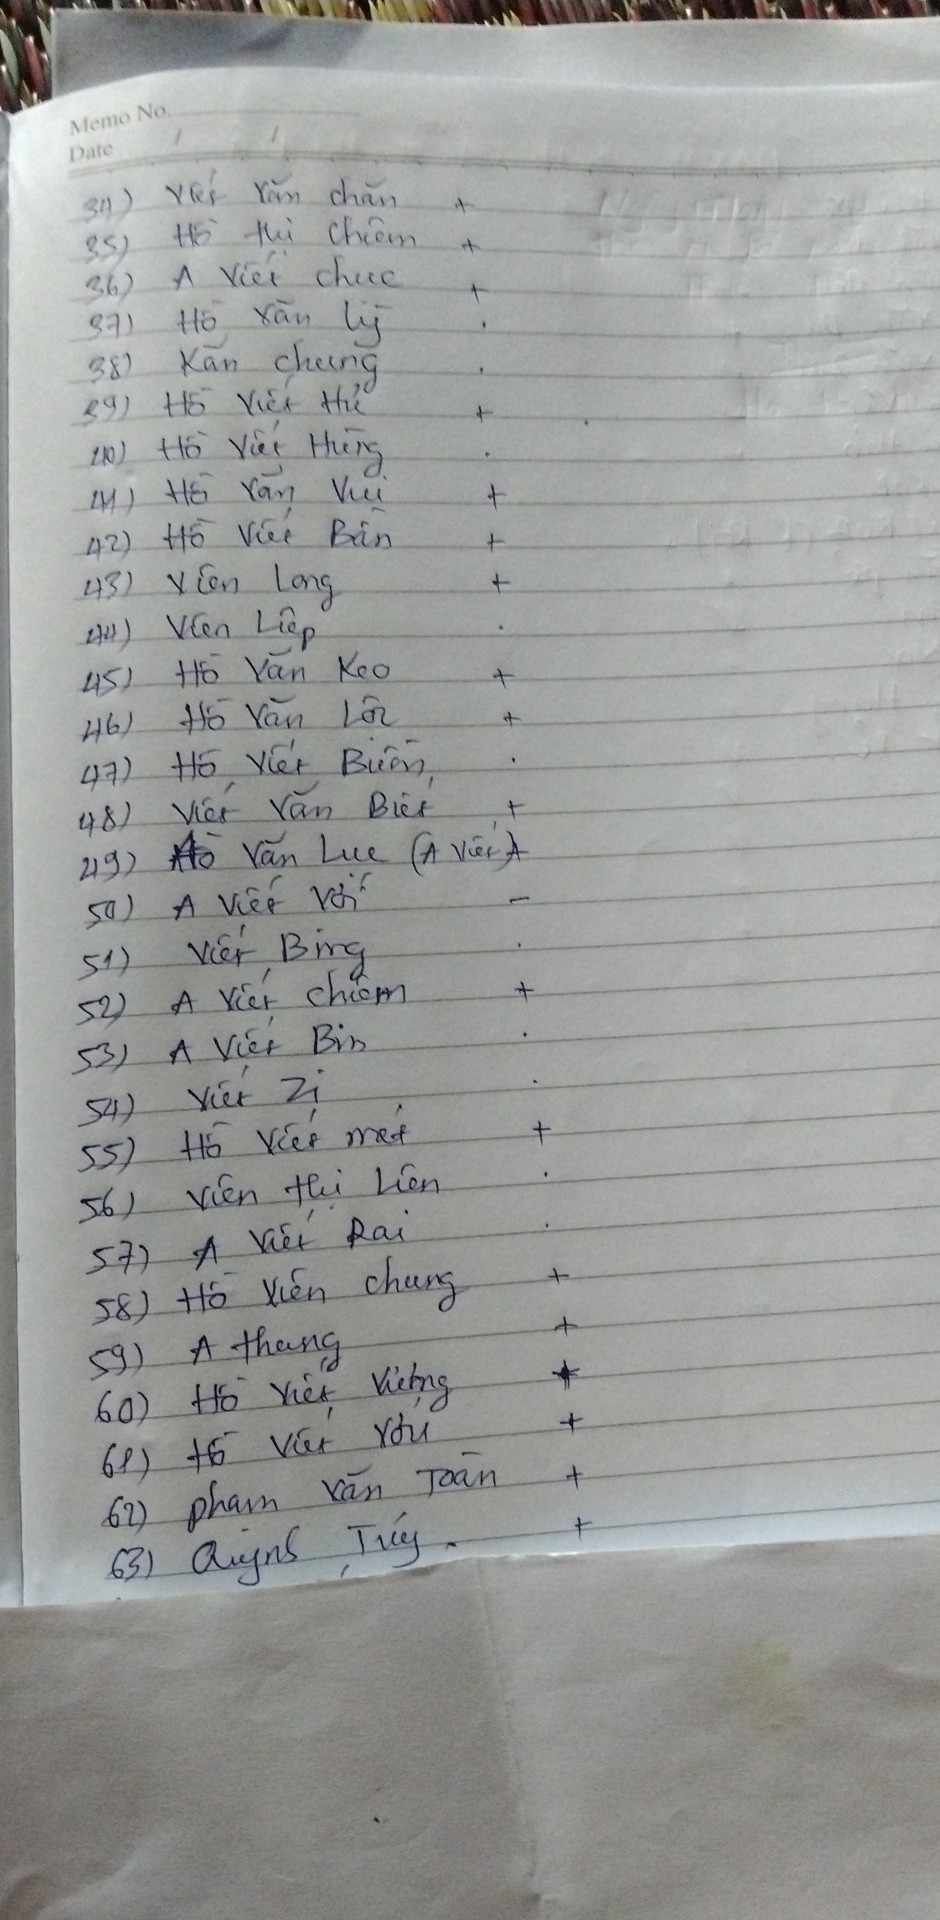 Memo No.
Date / /
34) Viết Văn chăn +
35) Hồ thị Chiêm +
36) A Viết chục +
37) Hồ Văn Lý .
38) Kăn chung .
39) Hồ Viết Hử +
40) Hồ Viết Hừng .
41) Hồ Văn Vui +
42) Hồ Viết Bản +
43) Viên Long +
44) Viên Liêp .
45) Hồ Văn Keo +
46) Hồ Văn +
47) Hồ Viết Buôn .
48) Viết Văn Biết +
49) Hồ Văn Lục (A Viết) +
50) A Viết Với -
51) Viết Bing .
52) A Viết chiêm +
53) A Viết Bin .
54) Viết Zi .
55) Hồ Viết mét +
56) Viên thị Liên .
57) A Viết Rai .
58) Hồ Viên chung +
59) A thang +
60) Hồ Viết +
61) Hồ Viết +
62) Phạm Văn Toàn +
63) Quỳnh Túy. +